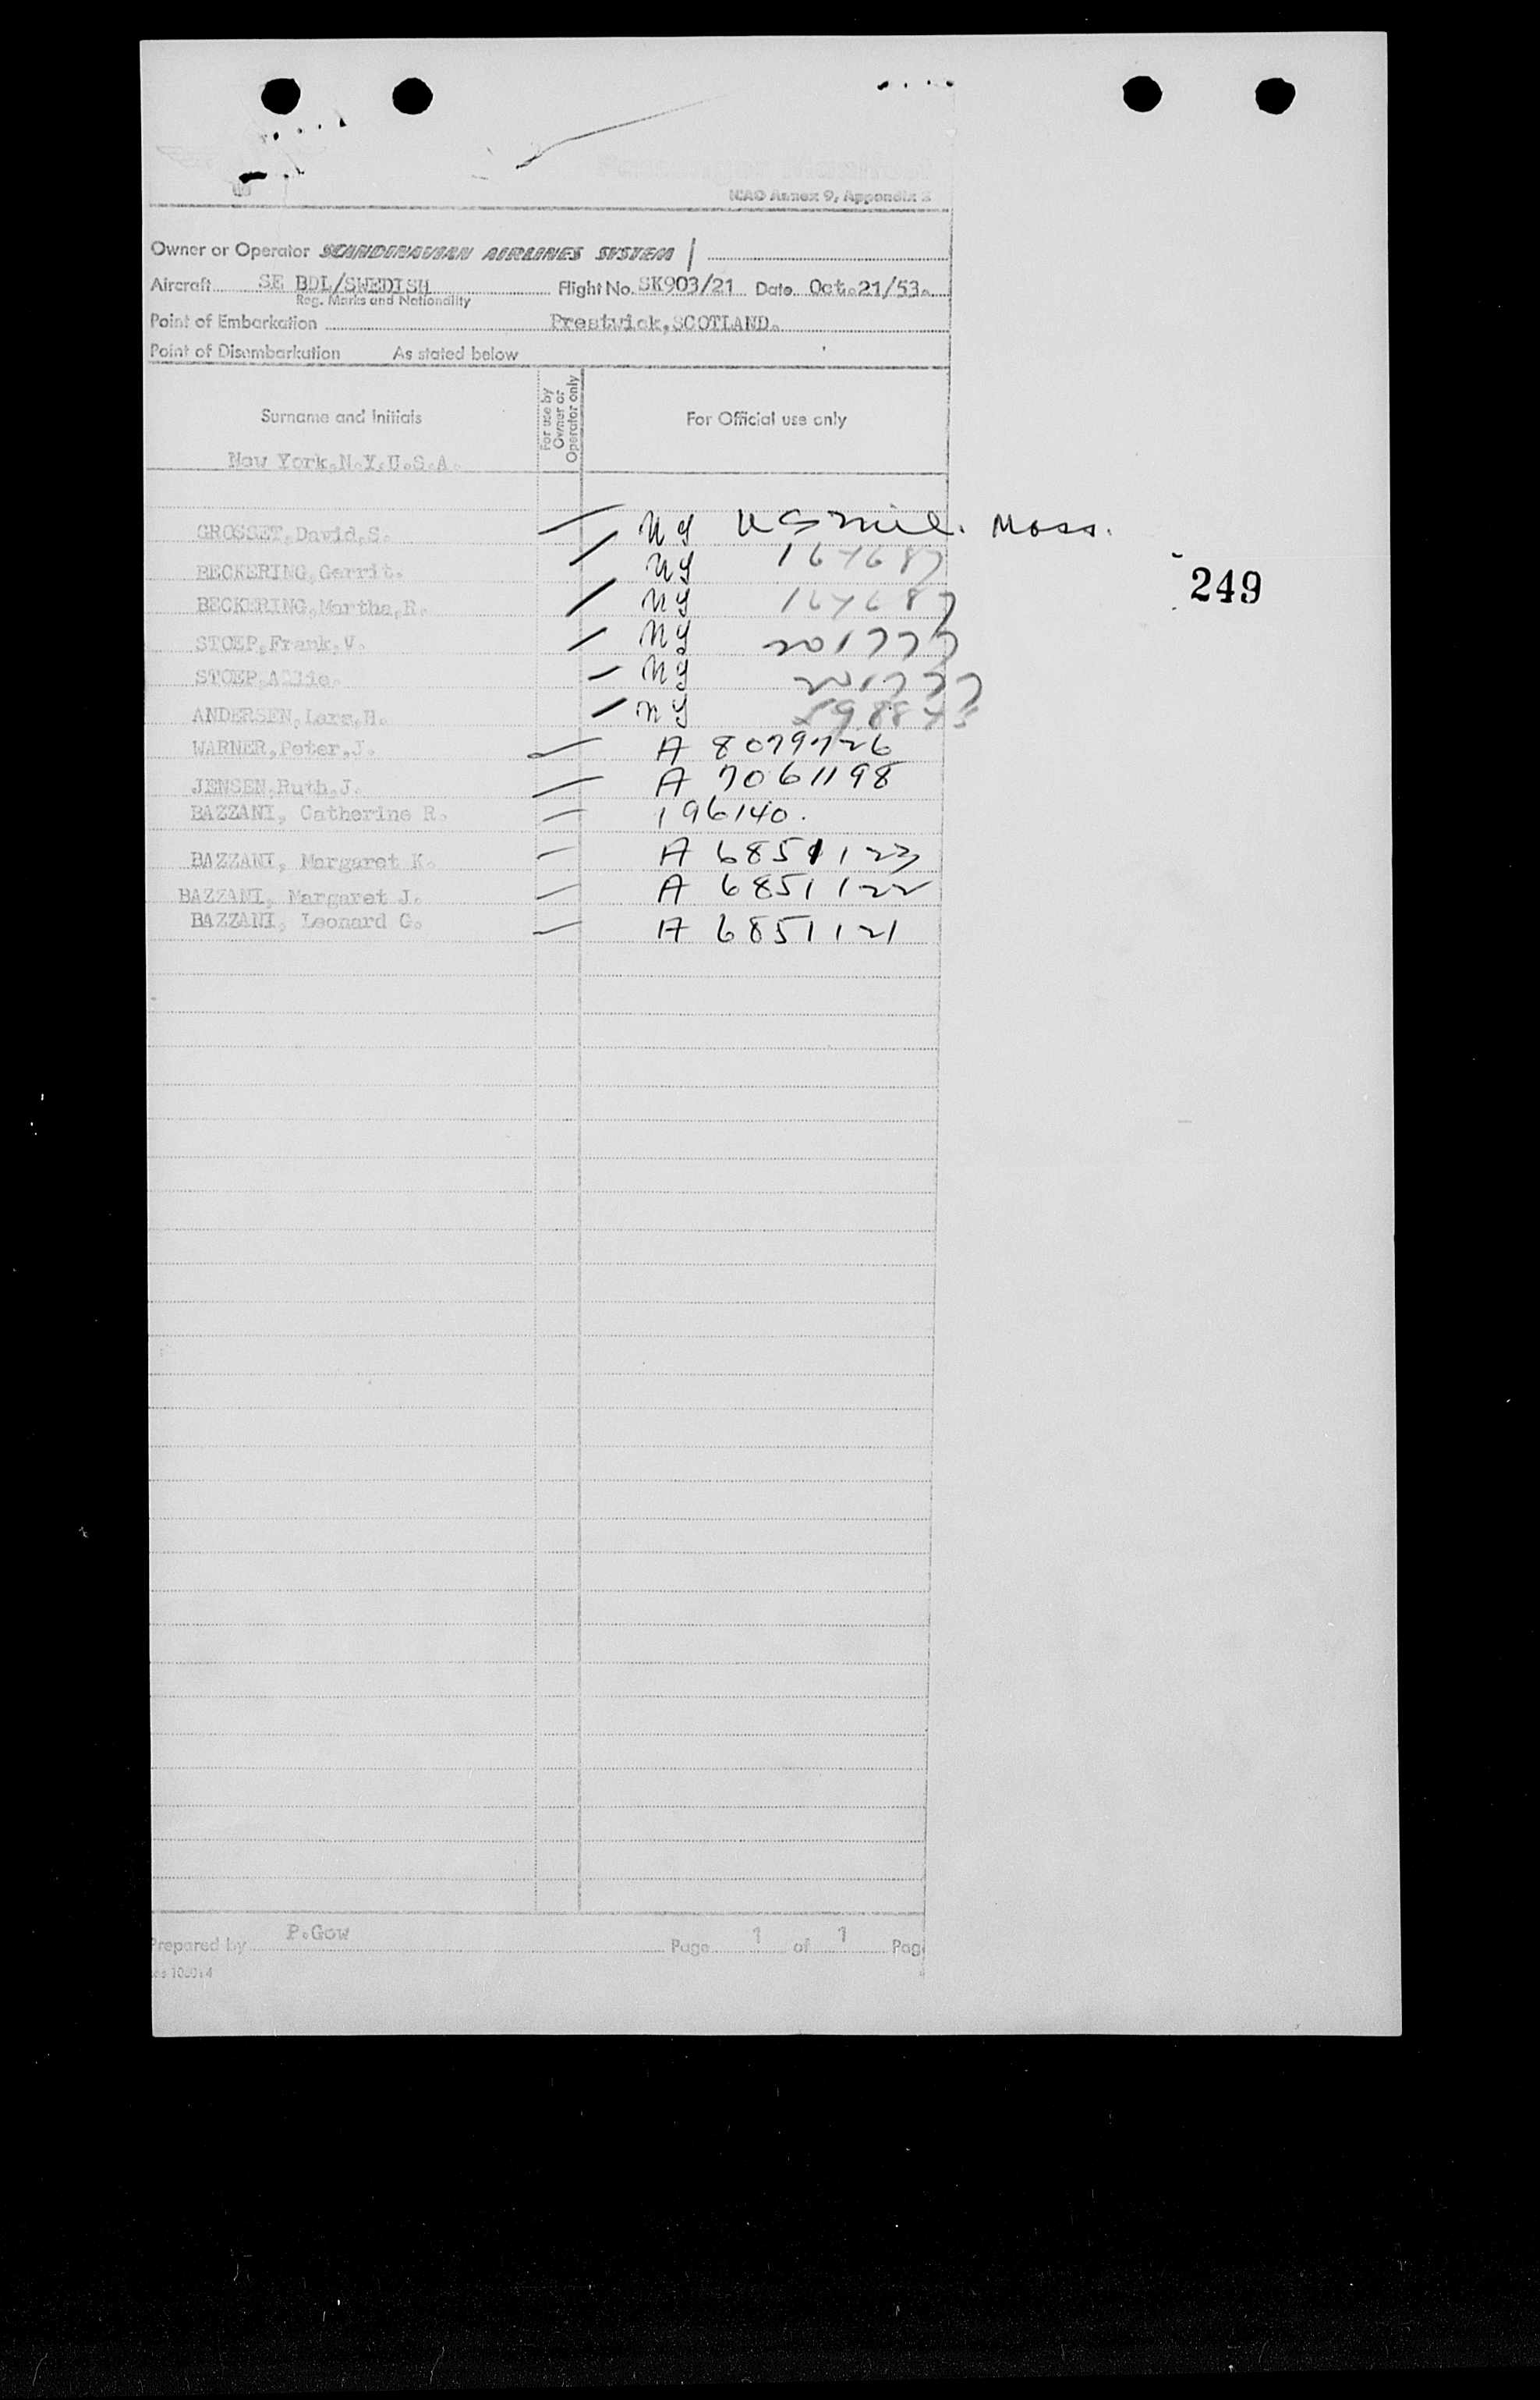 Passenger Manifest
ICAO Annex 9, Appendix 2
Owner or Operator SCANDINAVIAN AIRLINES SYSTEM
Aircraft SE BDL/SWEDISH Flight No. SK903/21 Date Oct.21/53.
Reg. Marks and Nationality
Point of Embarkation Prestwick,SCOTLAND.
Point of Disembarkation As stated below
Surname and Initials For use by Owner or Operator only For Official use only
New York.N.Y.U.S.A.
GROSSET,David,S. — NY US Mass.
249
BECKERING,Gerrit. / NY 167687
BECKERING,Martha,R. / NY 167687
STOEP,Frank,V. / NY 201777
STOEP, — NY 201777
ANDERSEN,Lars,H. / NY
WARNER,Peter,J. — A 8079726
JENSEN,Ruth,J. — A 7061198
BAZZANI, Catherine R. — 196140.
BAZZANI, Margaret K. — A 6851123
BAZZANI, Margaret J. — A 6851122
BAZZANI, Leonard G. — A 6851121
Prepared by P.Gow Page 1 of 1 Pag